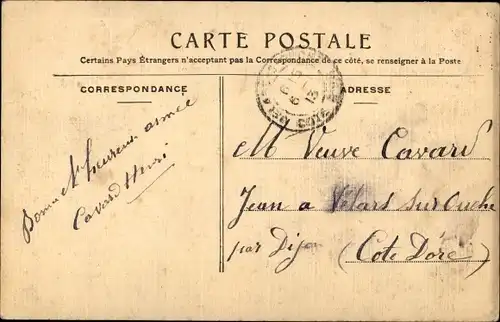 CARTE POSTALE
Certains Pays Étrangers n'acceptant pas la Correspondance de ce côté, se renseigner à la Poste
CORRESPONDANCE
ADRESSE
Bonne et heureuse année
Cavard Henri
M Veuve Cavard
Jean a Velars sur Ouche
par Dijon (Cote D'ore)